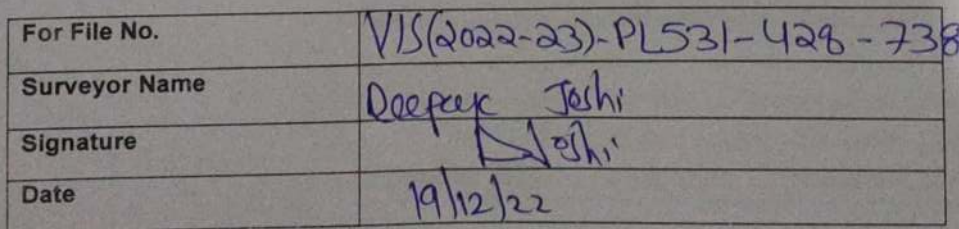 For File No. VIS(2022-23)-PL531-428-738
Surveyor Name Deepak Joshi
Signature DJoshi
Date 19/12/22